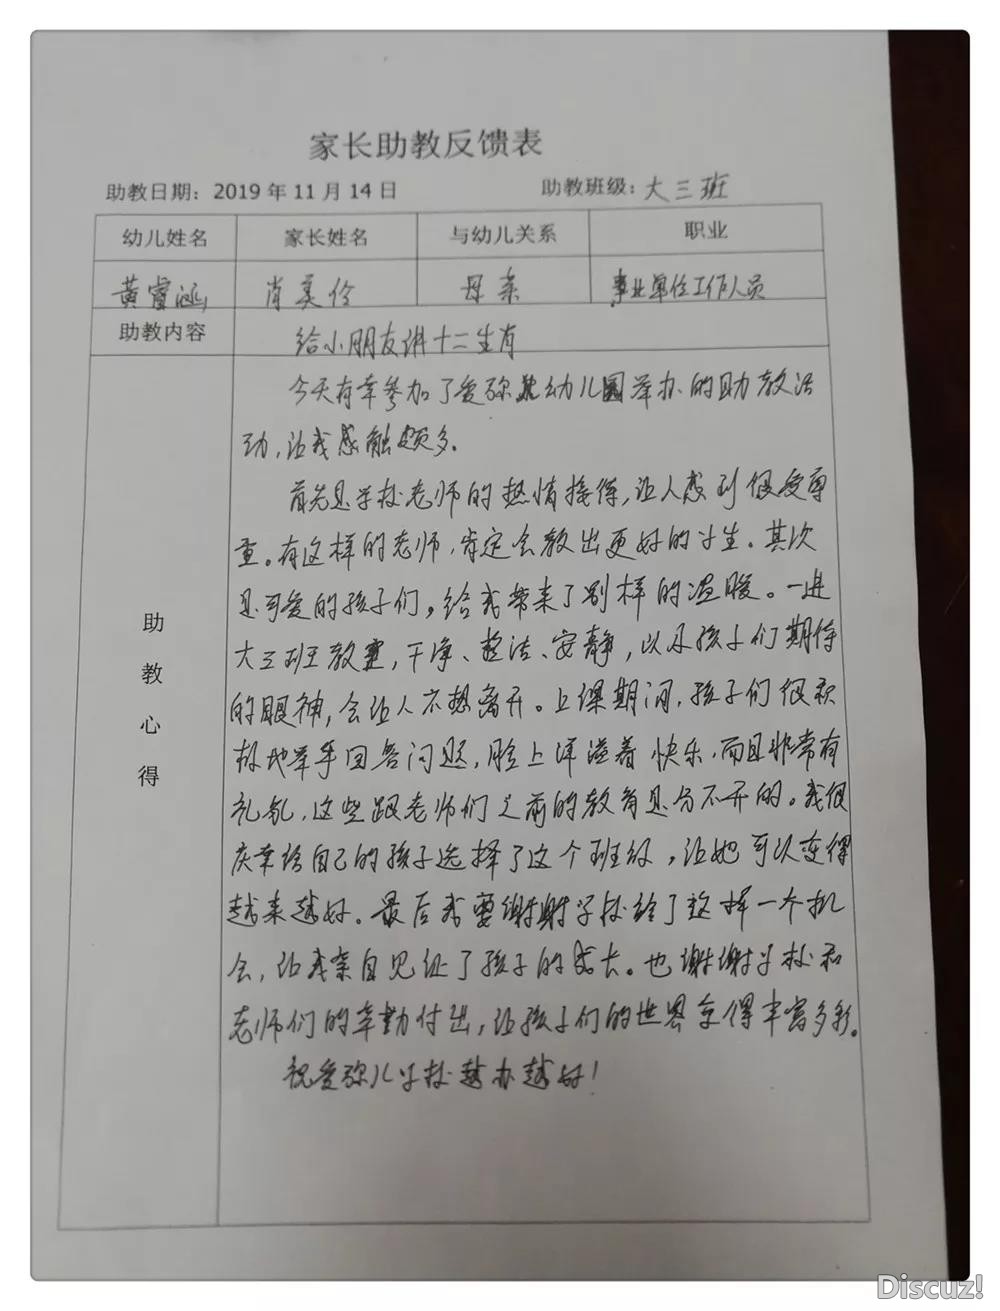 家长助教反馈表
助教日期：2019 年 11 月 14 日 助教班级：大三班
幼儿姓名 家长姓名 与幼儿关系 职业
黄睿涵 肖美伶 母亲 事业单位工作人员
助教内容 给小朋友讲十二生肖
助教心得
今天有幸参加了爱弥儿幼儿园举办的助教活
动，让我感触颇多。
首先是学校老师的热情接待，让人感到很受尊
重。有这样的老师，肯定会教出更好的学生。其次
是可爱的孩子们，给我带来了别样的温暖。一进
大三班教室，干净、整洁、安静，以及孩子们期待
的眼神，会让人不想离开。上课期间，孩子们很积
极地举手回答问题，脸上洋溢着快乐，而且非常有
礼貌，这些跟老师们之前的教育是分不开的。我很
庆幸给自己的孩子选择了这个班级，让她可以变得
越来越好。最后我要谢谢学校给了这样一个机
会，让我亲自见证了孩子的成长。也谢谢学校和
老师们的辛勤付出，让孩子们的世界变得丰富多彩。
祝爱弥儿学校越办越好！
Discuz!